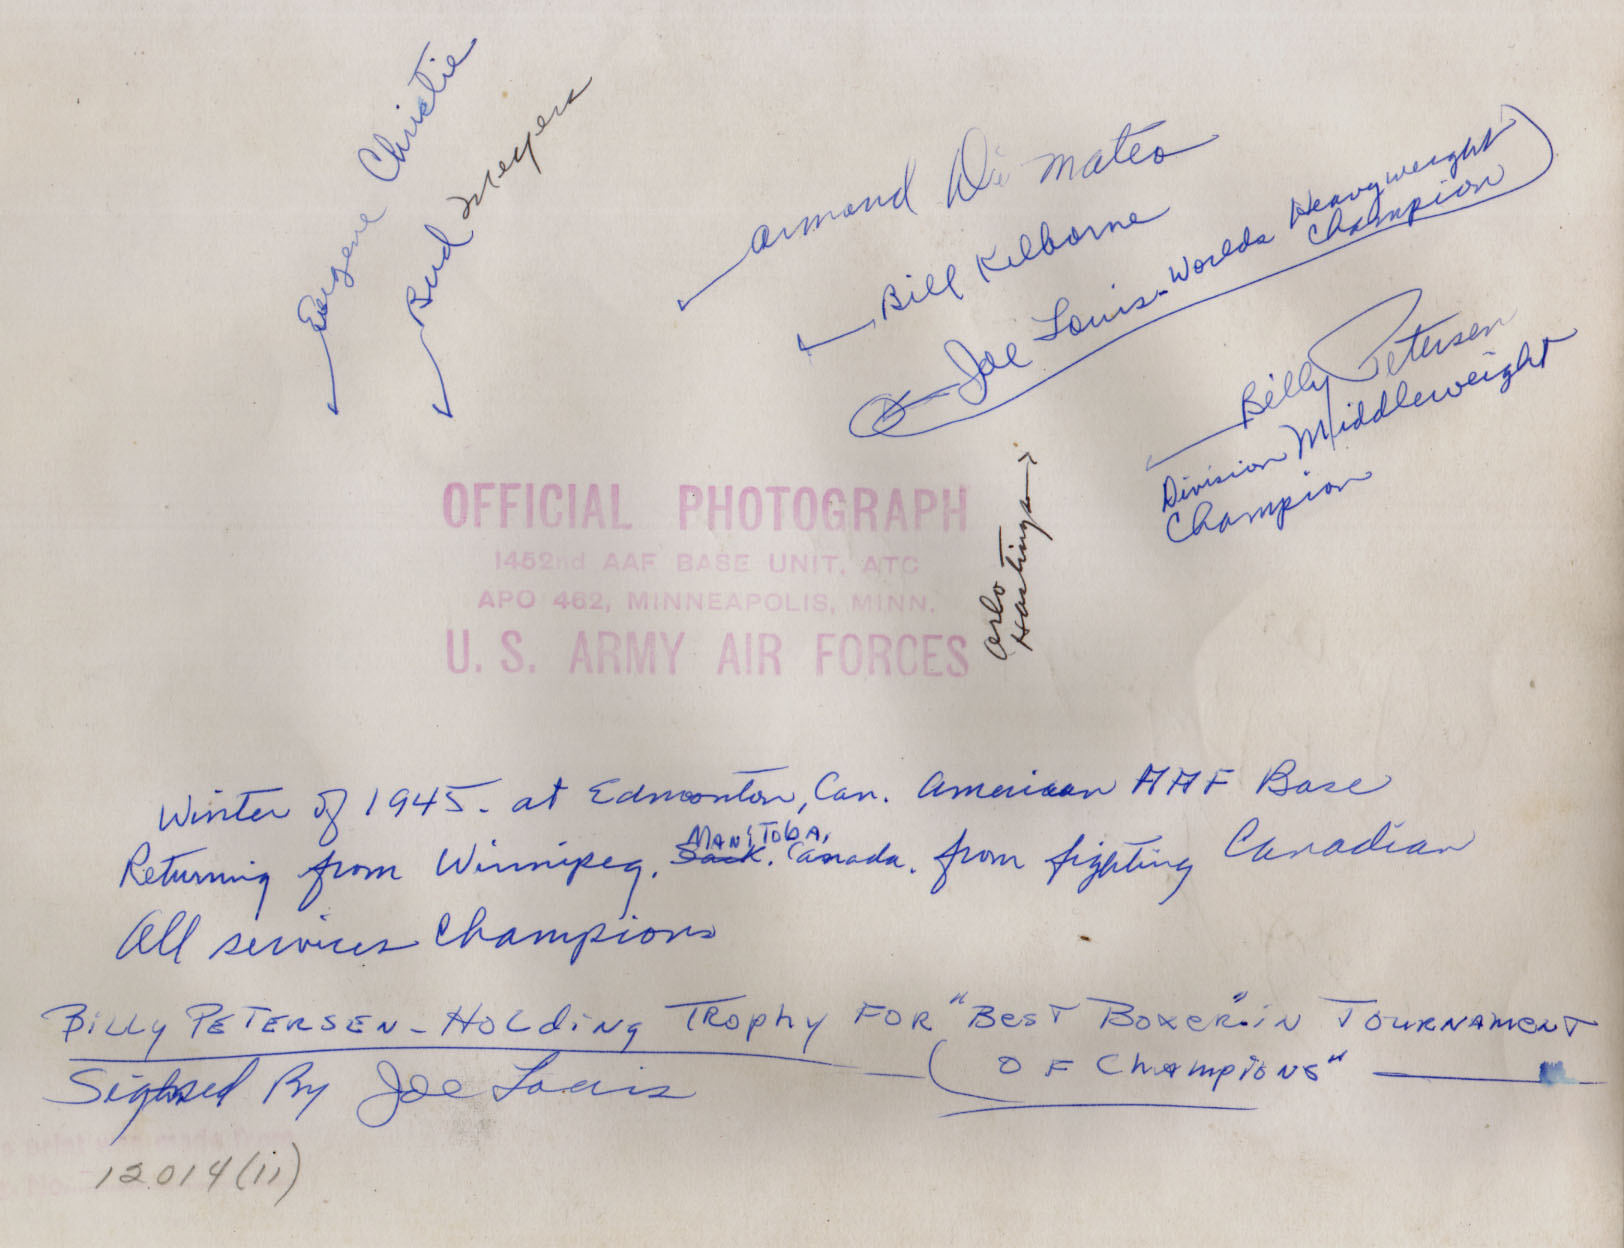 Eugene Christie
Bud Meyers
Armand Di Mateo
Bill Kilborne
Joe Louis - Worlds Heavyweight
Champion
Billy Petersen
Division Middleweight
Champion
Arlo
Hastings
OFFICIAL PHOTOGRAPH
1452nd AAF BASE UNIT, ATC
APO 462, MINNEAPOLIS, MINN.
U. S. ARMY AIR FORCES
Winter of 1945. at Edmonton, Can. American AAF Base
Returning from Winnipeg, Sask. MANITOBA, Canada. from fighting Canadian
All services Champions
Billy PETERSEN - Holding Trophy FOR "Best Boxer" in TOURNAMENT
OF Champions"
Signed By Joe Louis
12014(ii)